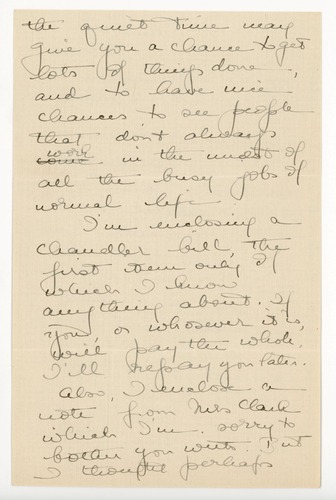 the quiet time may
give you a chance to get
lots of things done,
and to have nice
chances to see people
that don't always
work
come in the midst of
all the busy jobs of
normal life
I'm enclosing a
chandler bill, the
first item only of
which I know
anything about. If
you or whosever it is,
will pay the whole,
I'll repay you later.
Also, I enclose a
note from Mrs Clark
which I'm sorry to
bother you with. But
I thought perhaps